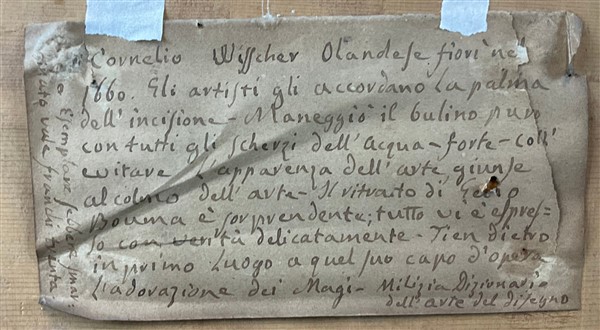 Cornelio Wisscher Olandese fiorì ne
1660. Gli artisti gli accordano la palma
dell'incisione - Maneggiò il bulino puro
con tutti gli scherzi dell'Acqua-forte - coll'
evitare l'apparenza dell'arte giunse
al colmo dell'arte - Il ritratto di
Bouma è sorprendente; tutto vi è espres=
so con verità delicatamente - Tien dietro
in primo luogo a quel suo capo d'opera
L'adorazione dei Magi - Milizia Dizionari
dell'arte del disegno
Esemplare sebben mar
vale franchi trenta